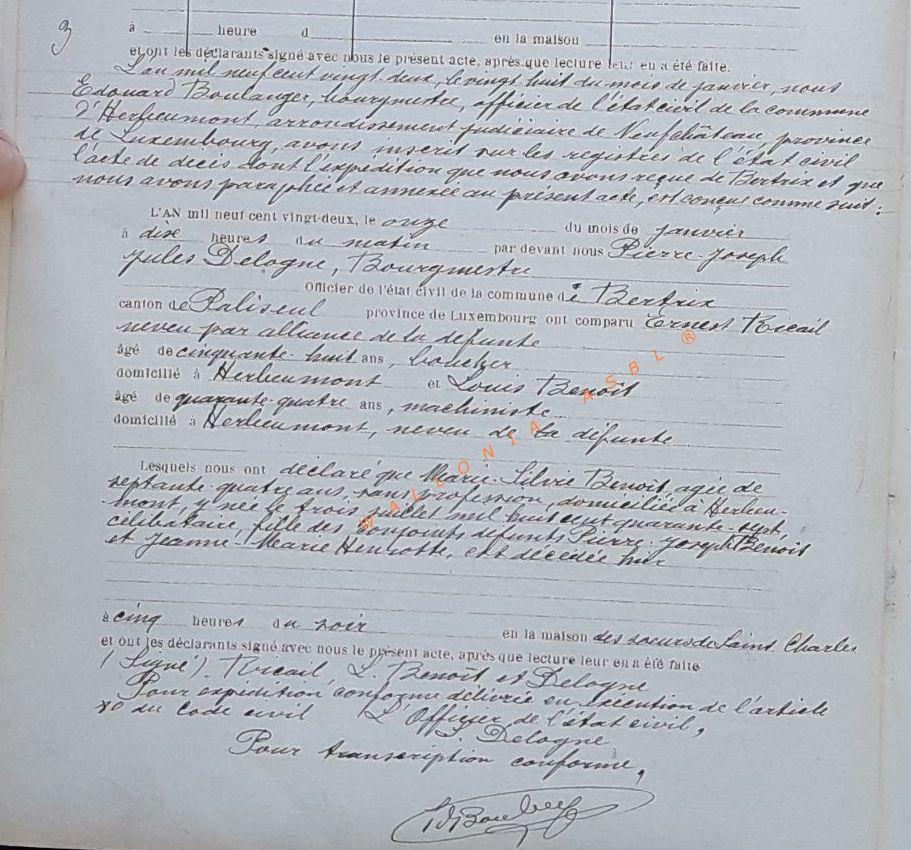 3
à heure d en la maison
et ont les déclarants signé avec nous le présent acte, après que lecture leur en a été faite.
L'an mil neuf cent vingt deux, le vingt huit du mois de janvier, nous
Edouard Boulanger, bourgmestre, officier de l'état civil de la commune
d'Herbeumont, arrondissement judiciaire de Neufchâteau, province
de Luxembourg, avons inscrit sur les registres de l'état civil
l'acte de décès dont l'expédition que nous avons reçue de Bertrix et que
nous avons paraphée et annexée au présent acte, est conçue comme suit :
L'AN mil neuf cent vingt-deux, le onze du mois de janvier
à dix heures du matin par devant nous Pierre-Joseph
Jules Delogne, Bourgmestre
Officier de l'état civil de la commune de Bertrix
canton de Paliseul province de Luxembourg ont comparu Ernest Ricail
neveu par alliance de la défunte
âgé de cinquante-huit ans, boucher
domicilié à Herbeumont et Louis Benoît
âgé de quarante-quatre ans, machiniste
domicilié à Herbeumont, neveu de la défunte
WALLONIA ASBL ®
Lesquels nous ont déclaré que Marie-Silvie Benoît, agée de
septante-quatre ans, sans profession, domiciliée à Herbeu-
mont, y née le trois juillet mil huit cent quarante-sept,
célibataire, fille des conjoints défunts Pierre-Joseph Benoît
et Jeanne-Marie Henrotte, est décédée hier
à cinq heures du soir en la maison des soeurs de Saint Charles
et ont les déclarants signé avec nous le présent acte, après que lecture leur en a été faite
(Signé). Ricail, L. Benoît et Delogne
Pour expédition conforme délivrée en exécution de l'article
80 du Code civil L'Officier de l'état civil,
J. Delogne
Pour transcription conforme,